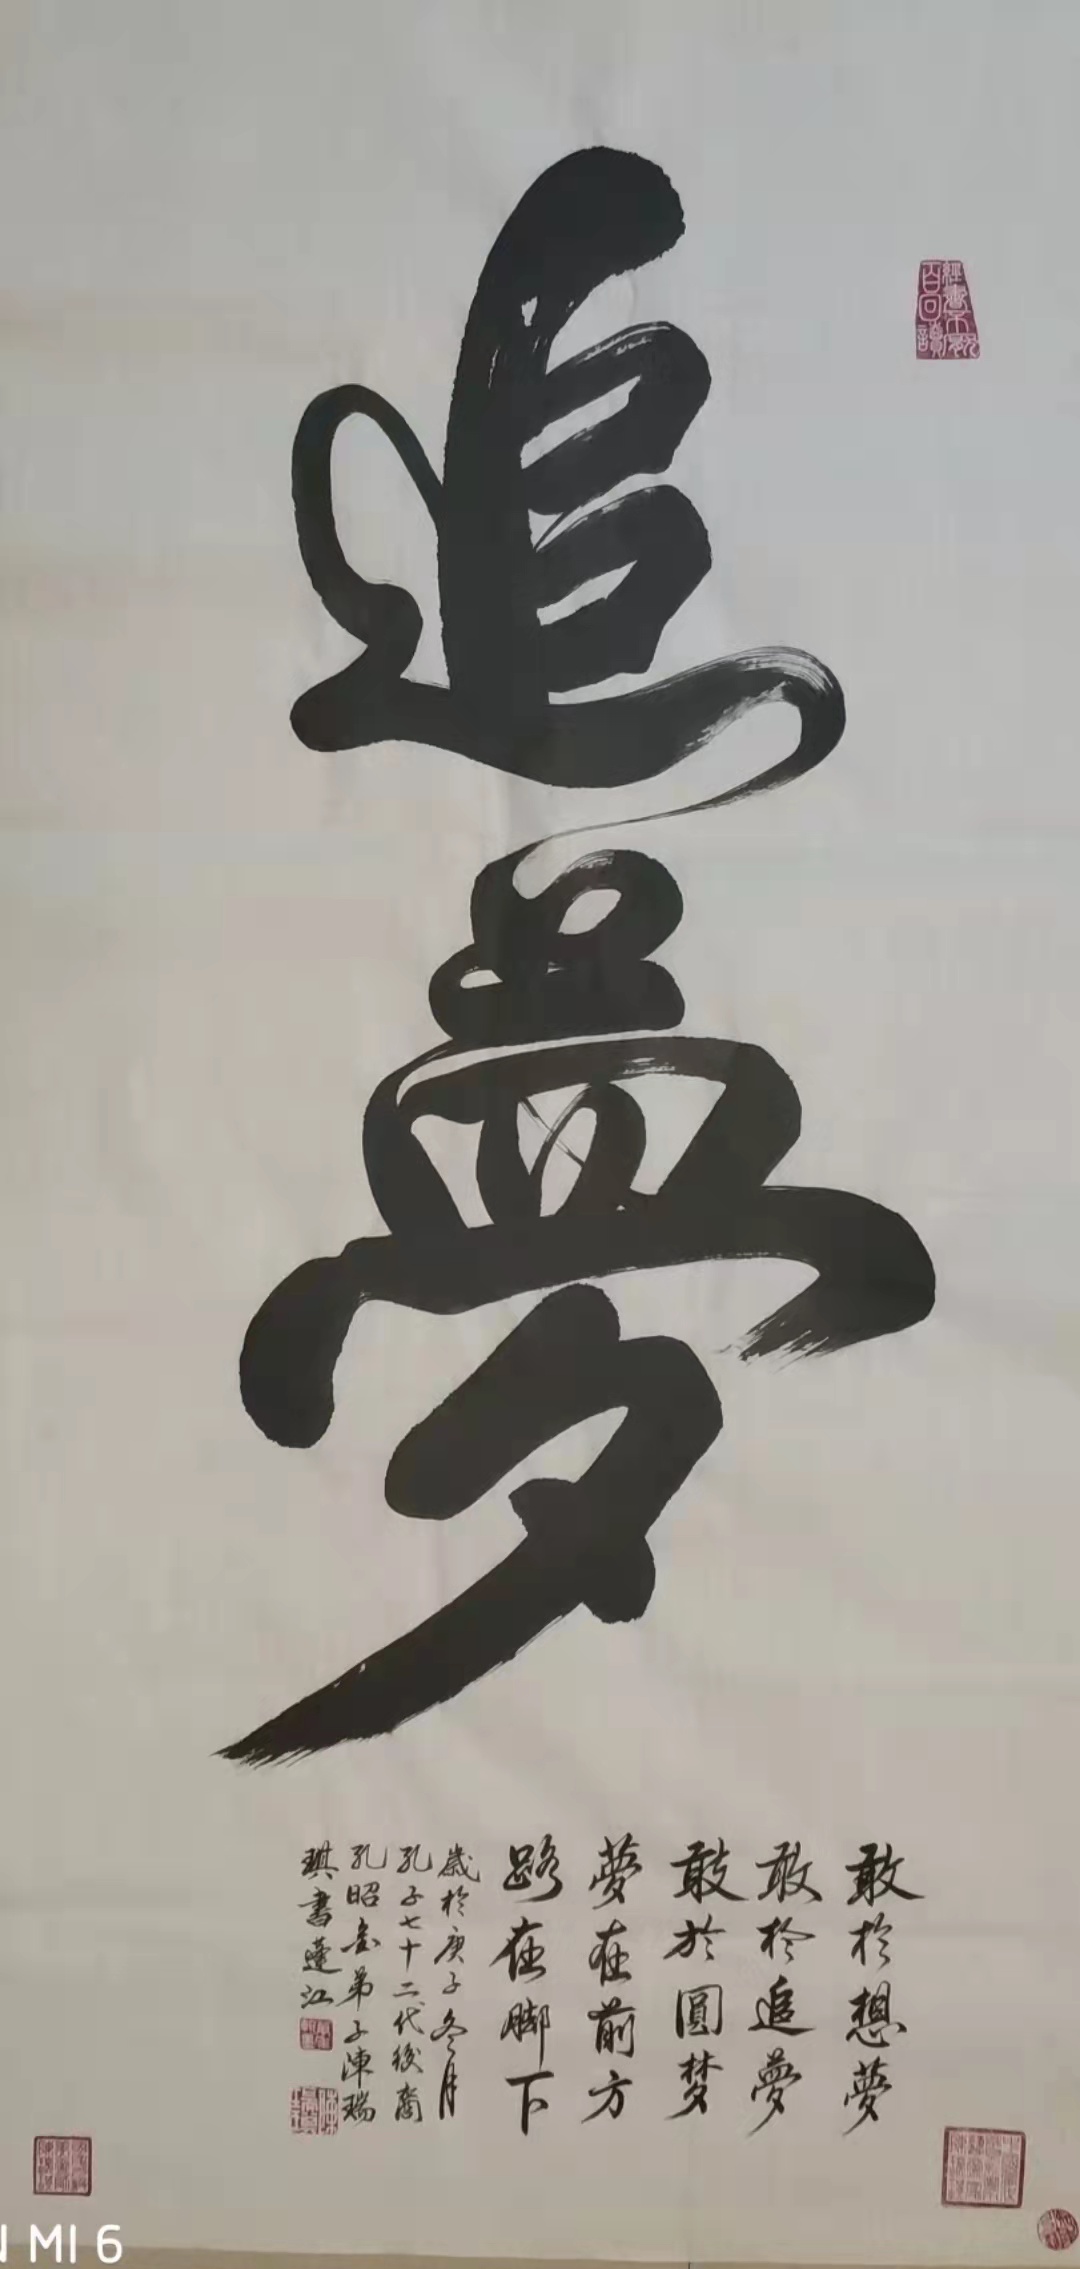 追夢
敢於想夢
敢於追夢
敢於圓梦
夢在前方
路在脚下
歲於庚子冬月
孔子七十二代後裔
孔昭金弟子陳瑞
琪書蓬江
百回讀
MI 6